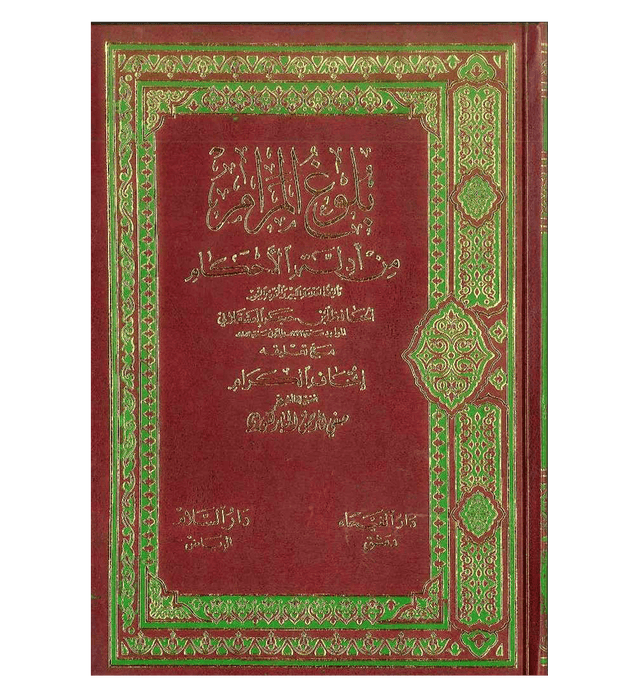 بلوغ المرام
من أدلة الأحكام
الحافظ ابن حجر العسقلاني
مع تعليقه
إتحاف الكرام
صفي الرحمن المباركفوري
دار الفيحاء
دار السلام
دمشق
الرياض